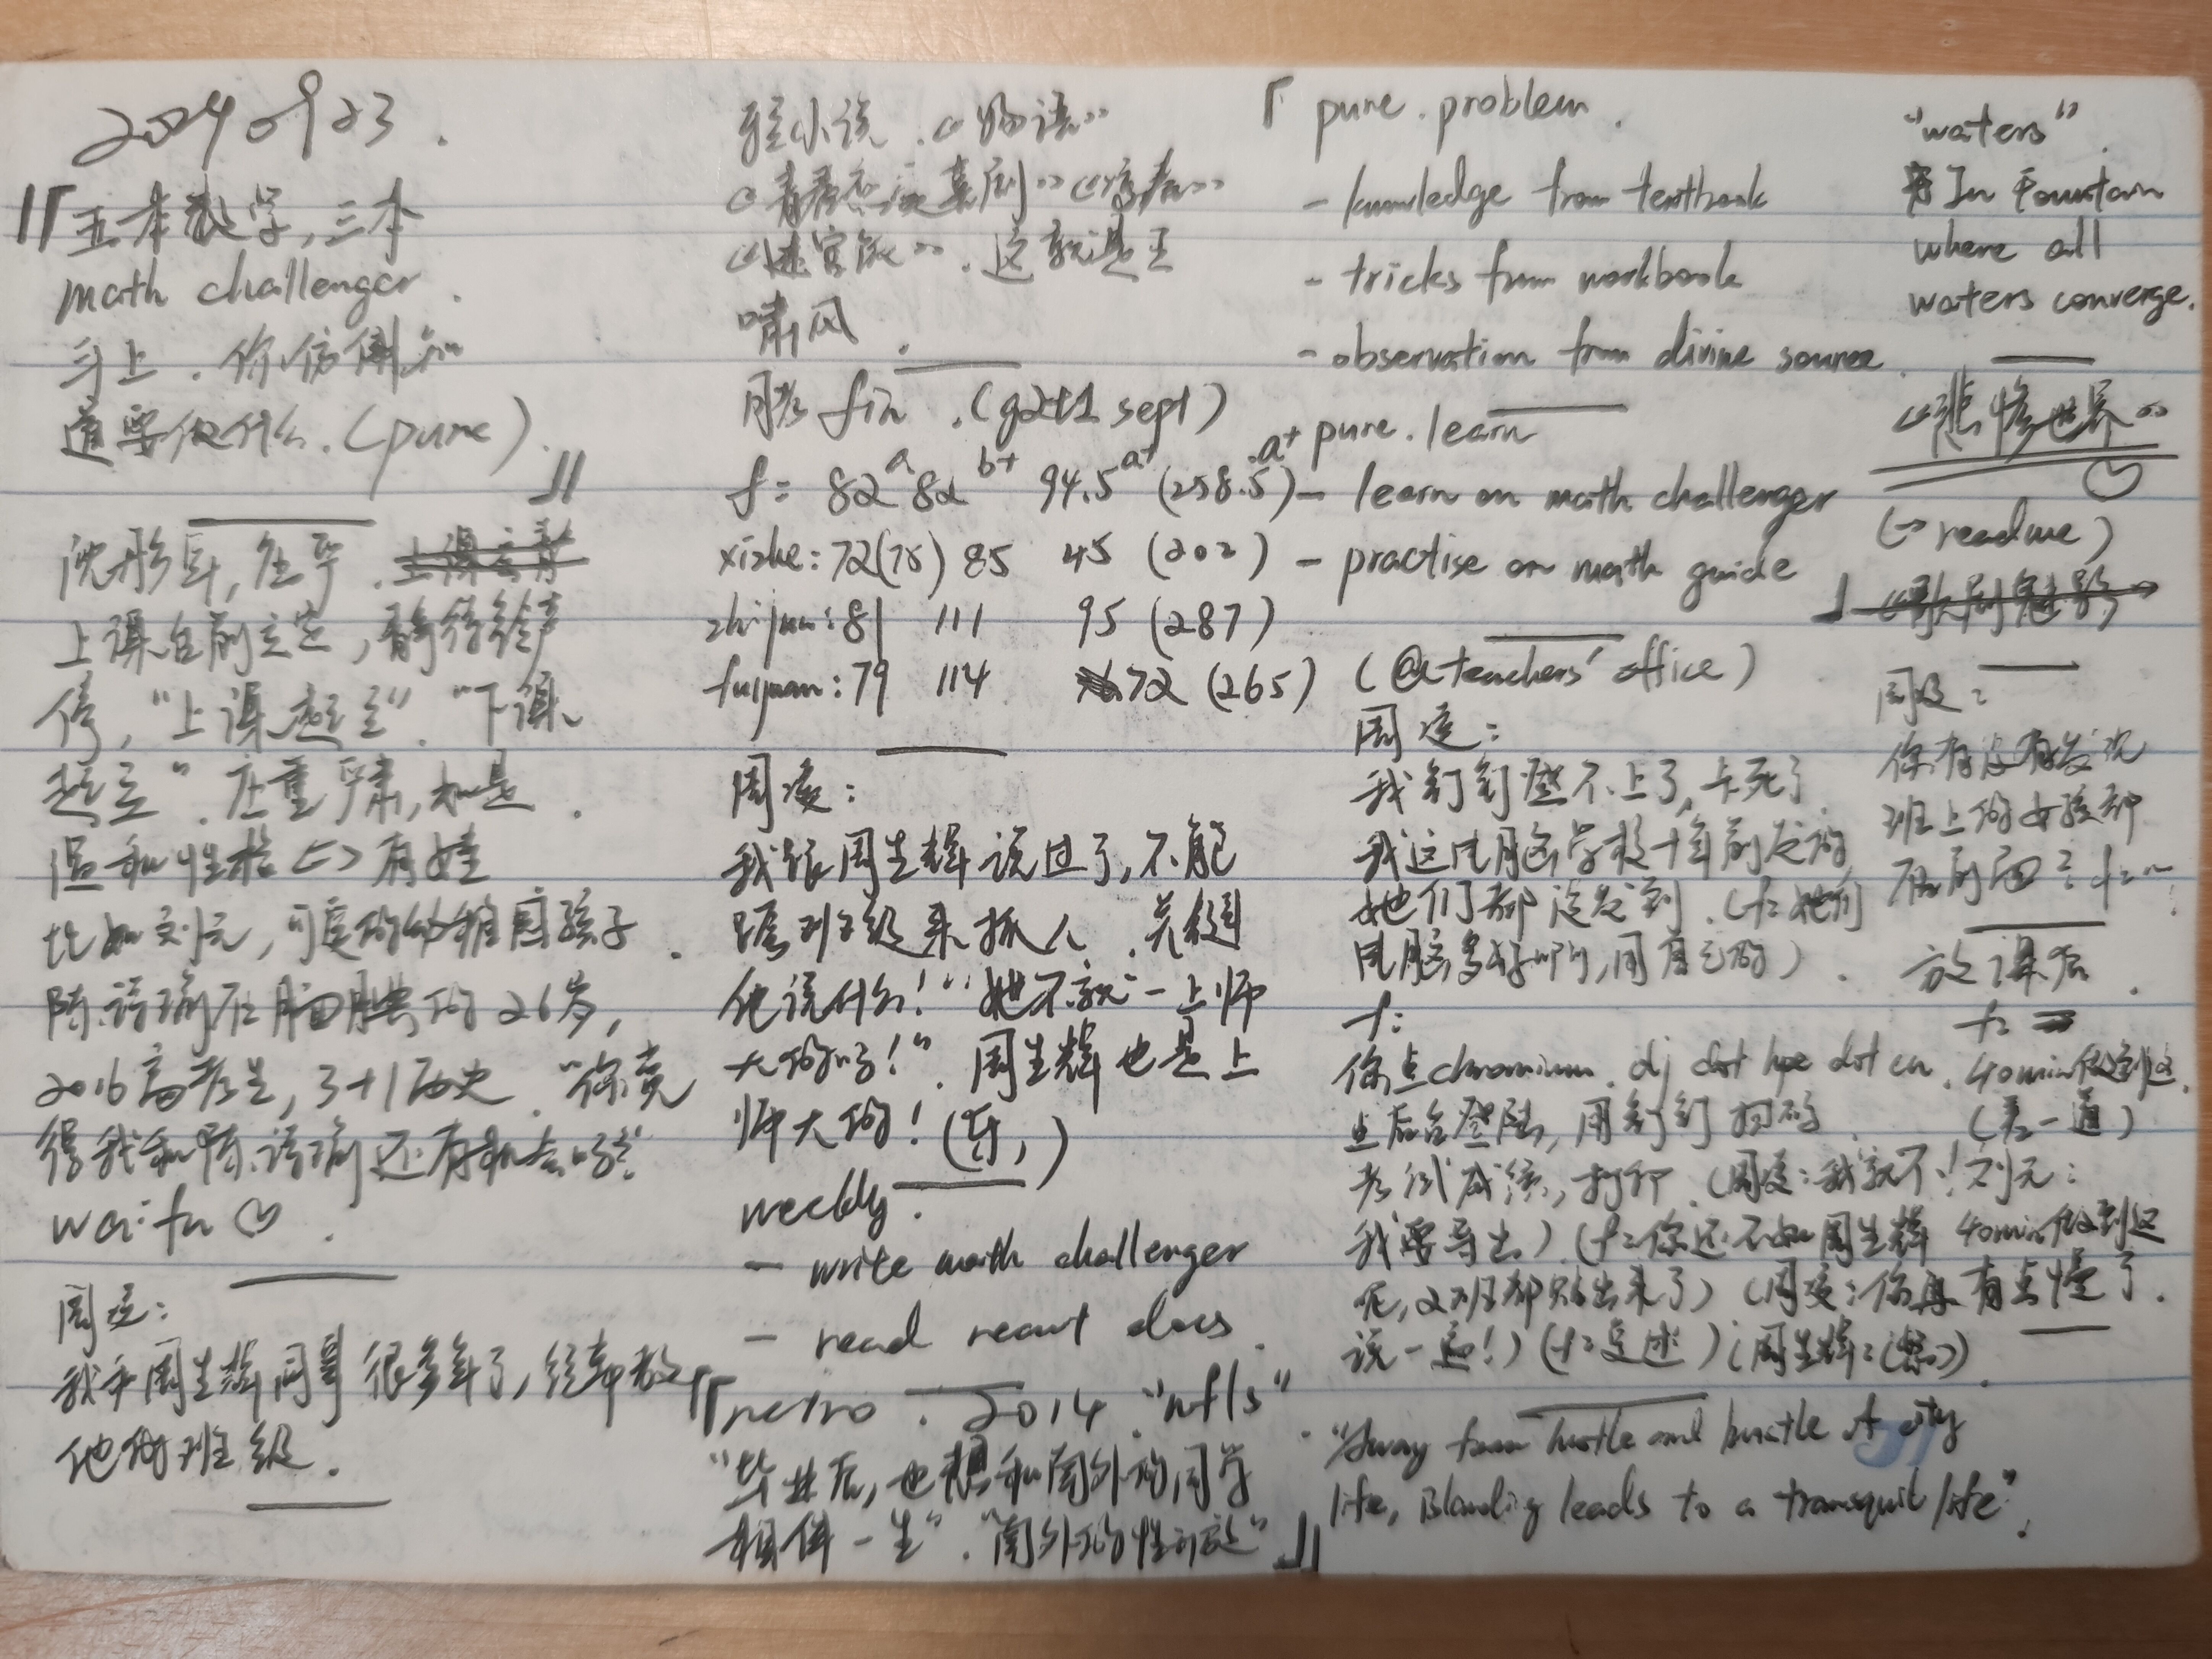 20240923.
『五本数学,三本
math challenger.
马上.你仿佛知
道要做什么.(pure).
』
沈彤臣,庄严.
上课台前立定,静待铃声
停,“上课起立”.“下课
起立”.庄重严肃,如是.
温和性格<->有
比如刘元,可爱的幼稚园孩子.
陈语瑜在的26岁,
2016高考生,3+1历史.“你觉
得我和陈语瑜还有机会吗?”
waifu ♡.
周凌:
我和周生辉同事很多年了,经常教
他的班级.
轻小说.《物语》
《青春恋爱喜剧》
《迷宫饭》.这就是王
啸风.
月考 fin.(g2t1 sept)
f: 82 a 82 b+ 94.5 a+ (258.5) a+
xizhe: 72(78) 85 45 (202)
zhijun: 81 111 95 (287)
fuijuan: 79 114 72 (265)
周凌:
我跟周生辉说过了,不能
班级来抓人.
他说什么!“她不就一上师
大的吗!”.周生辉也是上
师大的!(乐,)
weekly.
- write math challenger
- read react docs.
『retro. 2014. "nfls".
“毕业后,也想和南外的同学
相伴一生”.“南外的性解放”』
「pure.problem.
- knowledge from textbook
- tricks from workbook
- observation from divine source.
pure.learn
- learn on math challenger
- practise on math guide
」
(@teachers' office)
周凌:
我钉钉登不上了,卡死了.
我这电脑学校十年前发的,
她们都没发到.(f:她们
电脑多好哟,用自己的).
f:
你点chromium.dj dot hpe dot cn.
点后台登陆,用钉钉扫码.
考试成绩,打印.(周凌:我就不!
我要导出)(f:你还不如周生辉
呢,2班都贴出来了)(周凌:你再
说一遍!)(f:复述)(周生辉:(默)).
"Away from hustle and bustle of city
life, Blanding leads to a tranquil life".
"waters".
In Fountain
where all
waters converge.
《悲惨世界》
♡
(-> readme)
《歌剧魅影》
周凌:
你有没有发现
班上的女孩都
在前面? f:...
放课后.
f:
40min做到这.
(差一道)
刘元:
40min做到这
有点慢了.